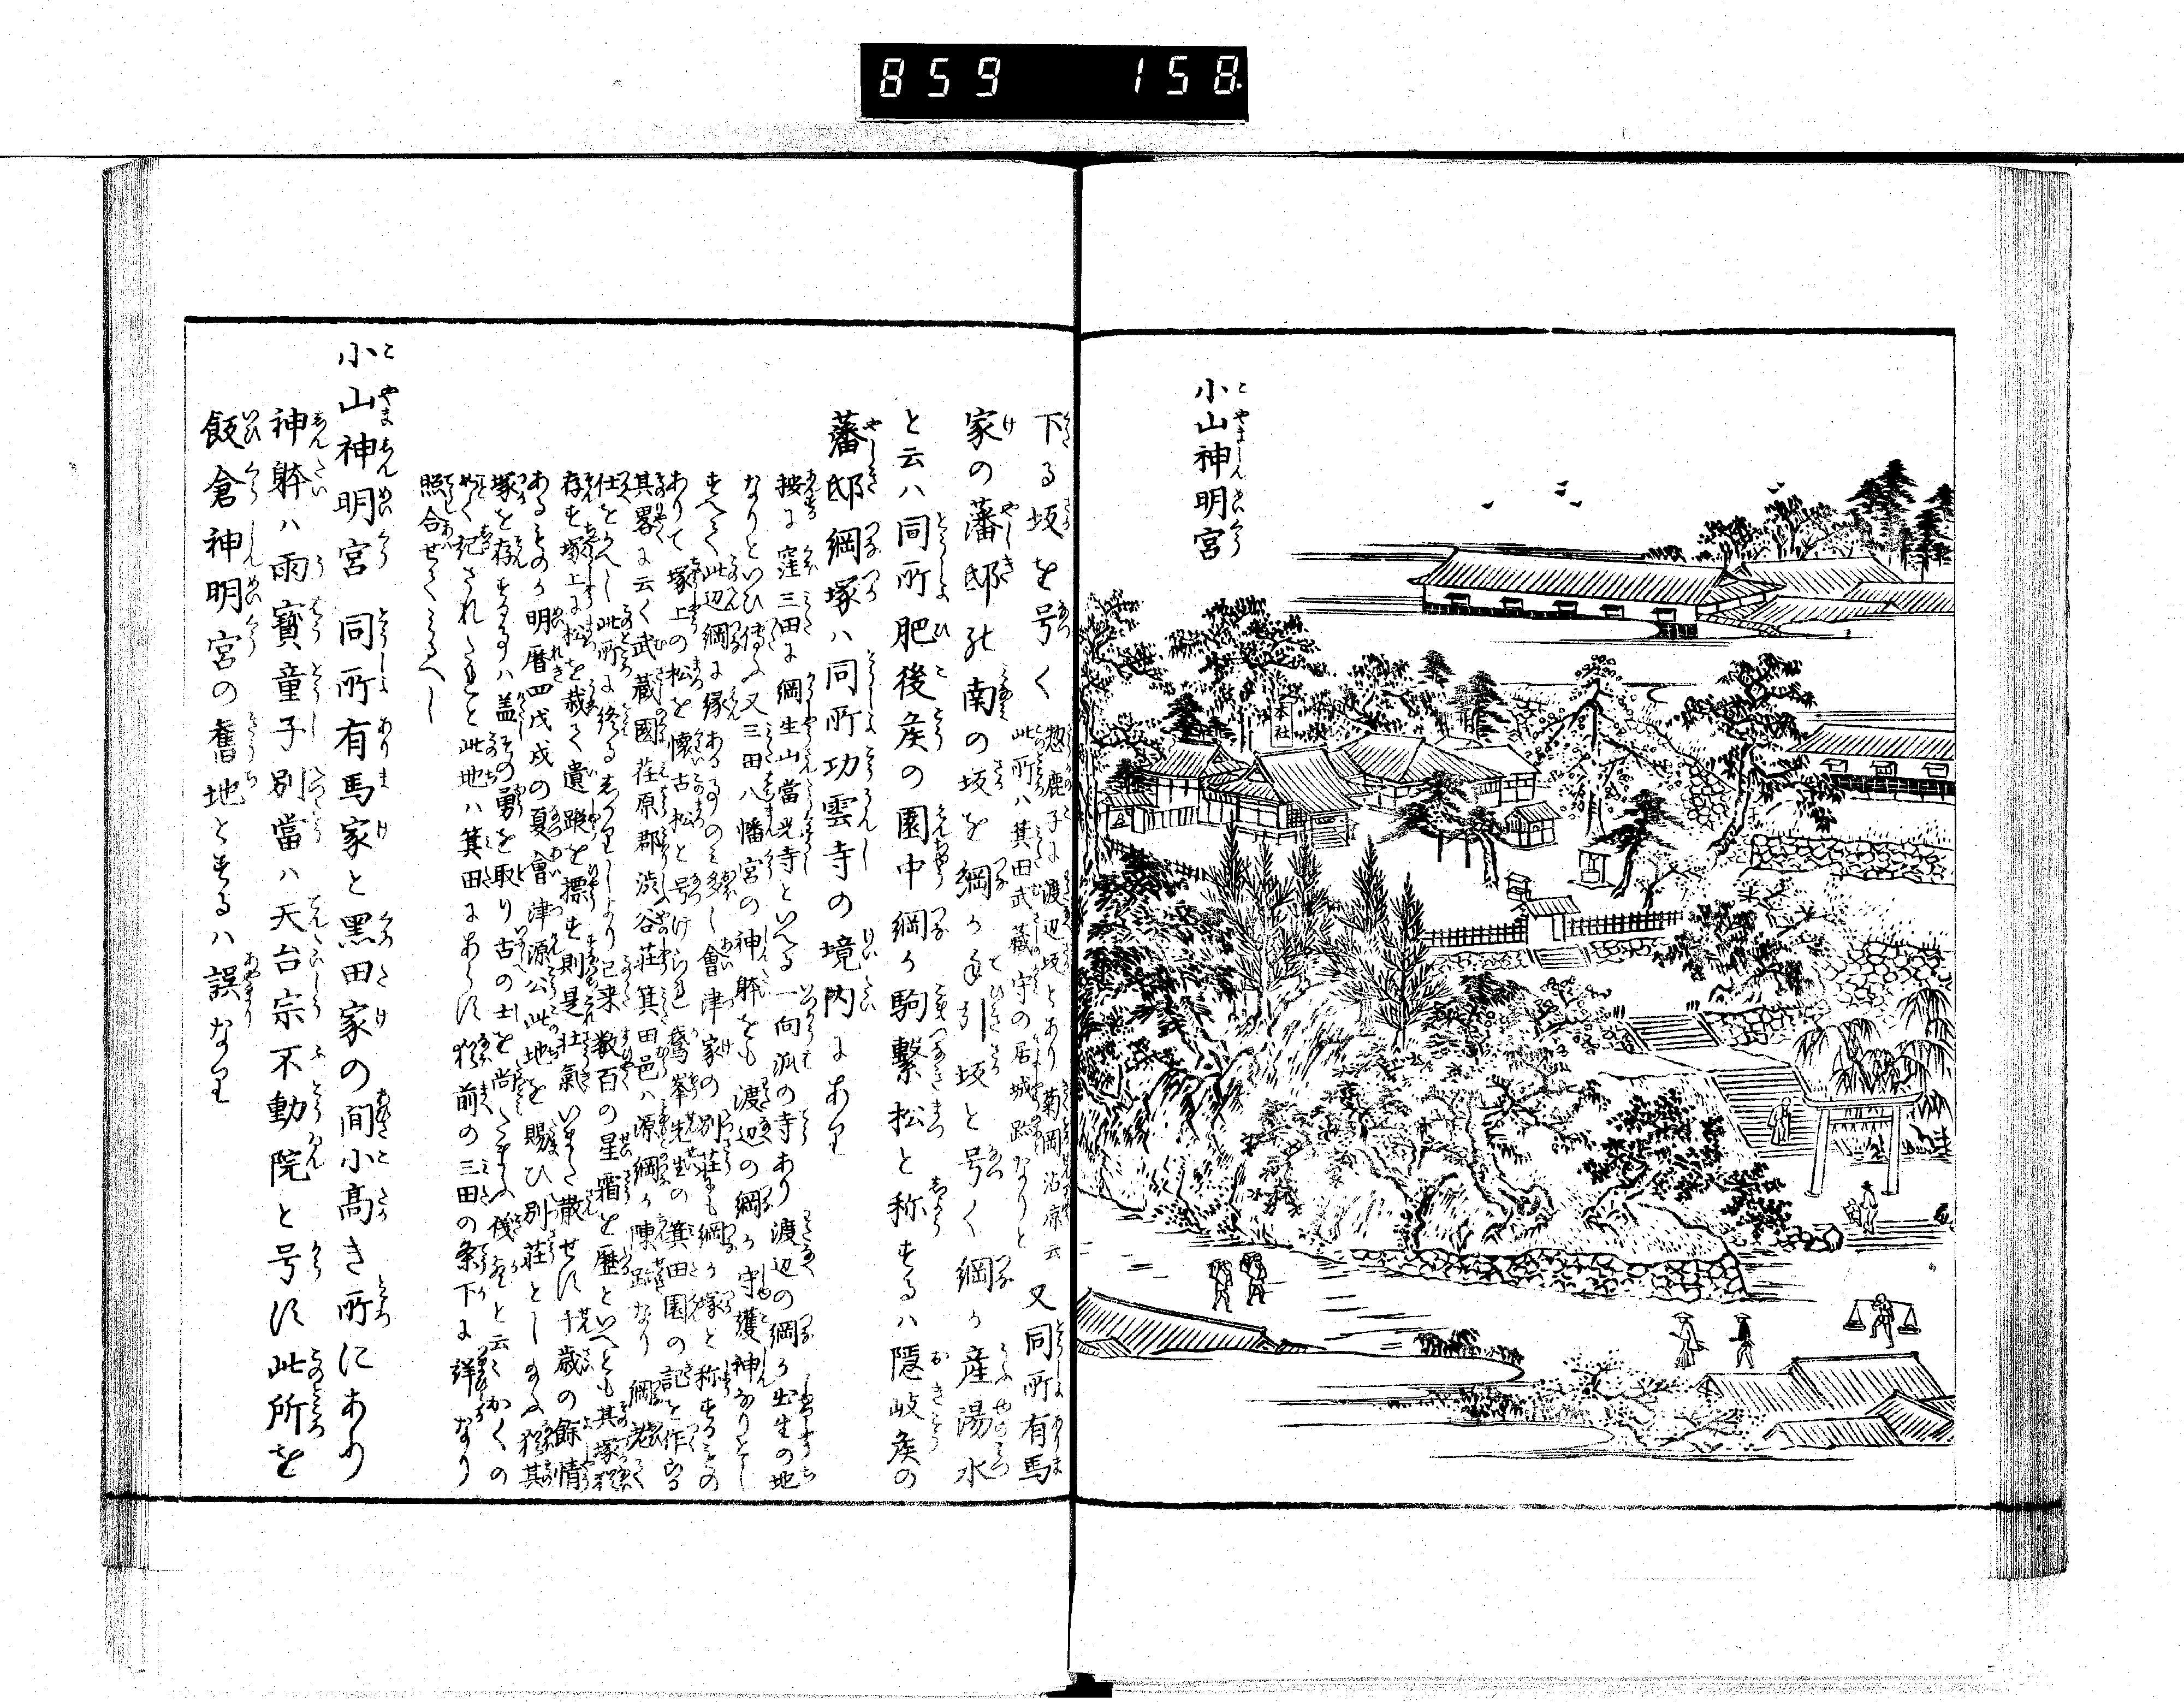 859 158
小山神明宮
本社
下る坂を号く
惣鹿子に渡辺坂とあり菊岡沾凉云
此所ハ箕田武蔵守の居城跡なりと
又同所有馬
家の藩邸の南の坂を綱の手引坂と号く綱の産湯水
と云ハ同所肥後矦の園中綱の駒繋松と称するハ隠岐矦の
藩邸綱塚ハ同所功雲寺の境内にあり
按に窪三田に綱生山當光寺といへる一向派の寺あり渡辺の綱の出生の地
なりといひ傳ふ又三田八幡宮の神躰をも渡辺の綱の守護神なりとし
すへて此辺綱に縁あるものミ多し會津家の別荘にも綱の塚と称するもの
ありて塚上の松を懐古松と号けらる鵞峯先生の箕田園の記を作らる
其畧に云く武蔵國荏原郡渋谷荘箕田邑ハ源綱の陳跡なり綱老て
仕をかへし此所に終る志かりしより已来数百の星霜を歴といへとも其塚猶
存す塚上に松を栽て遺蹤を標す則是壮氣いまた散せす千歳の餘情
あるものか明暦四戊戌の夏會津源公此地を賜ひ別荘としたまふ猶其
塚を存するハ盖その勇を取り古の士を尚たまふ儀なりと云々かくの
如く紀されたれと此地ハ箕田にあらす猶前の三田の条下に詳なり
照合せてミるへし
小山神明宮 同所有馬家と黒田家の間小髙き所にあり
神躰ハ雨寳童子別當ハ天台宗不動院と号す此所を
飯倉神明宮の舊地とするハ誤なり